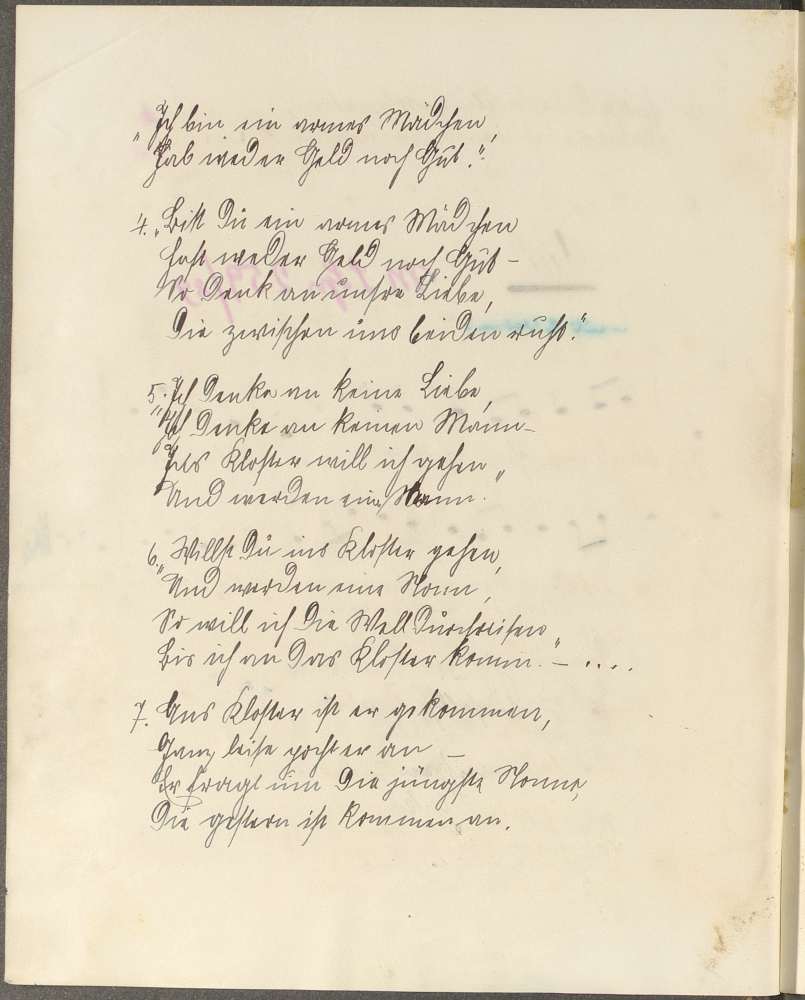 „Ich bin ein armes Mädchen,
Hab weder Geld noch Gut."
4. „Bist Du ein armes Mädchen
Hast weder Geld noch Gut –
So denk an unsre Liebe,
Die zwischen uns beiden ruht."
5. Ich denke an keine Liebe,
„Ich denke an keinen Mann –
Ins Kloster will ich gehen
Und werden eine Nonn."
6. „Willst Du ins Kloster gehen,
Und werden eine Nonn,
So will ich die Welt durchreisen
Bis ich an das Kloster komm." – ....
7. Ans Kloster ist er gekommen,
Ganz leise pocht er an –
Er fragt um die jüngste Nonne,
Die gestern ist kommen an.